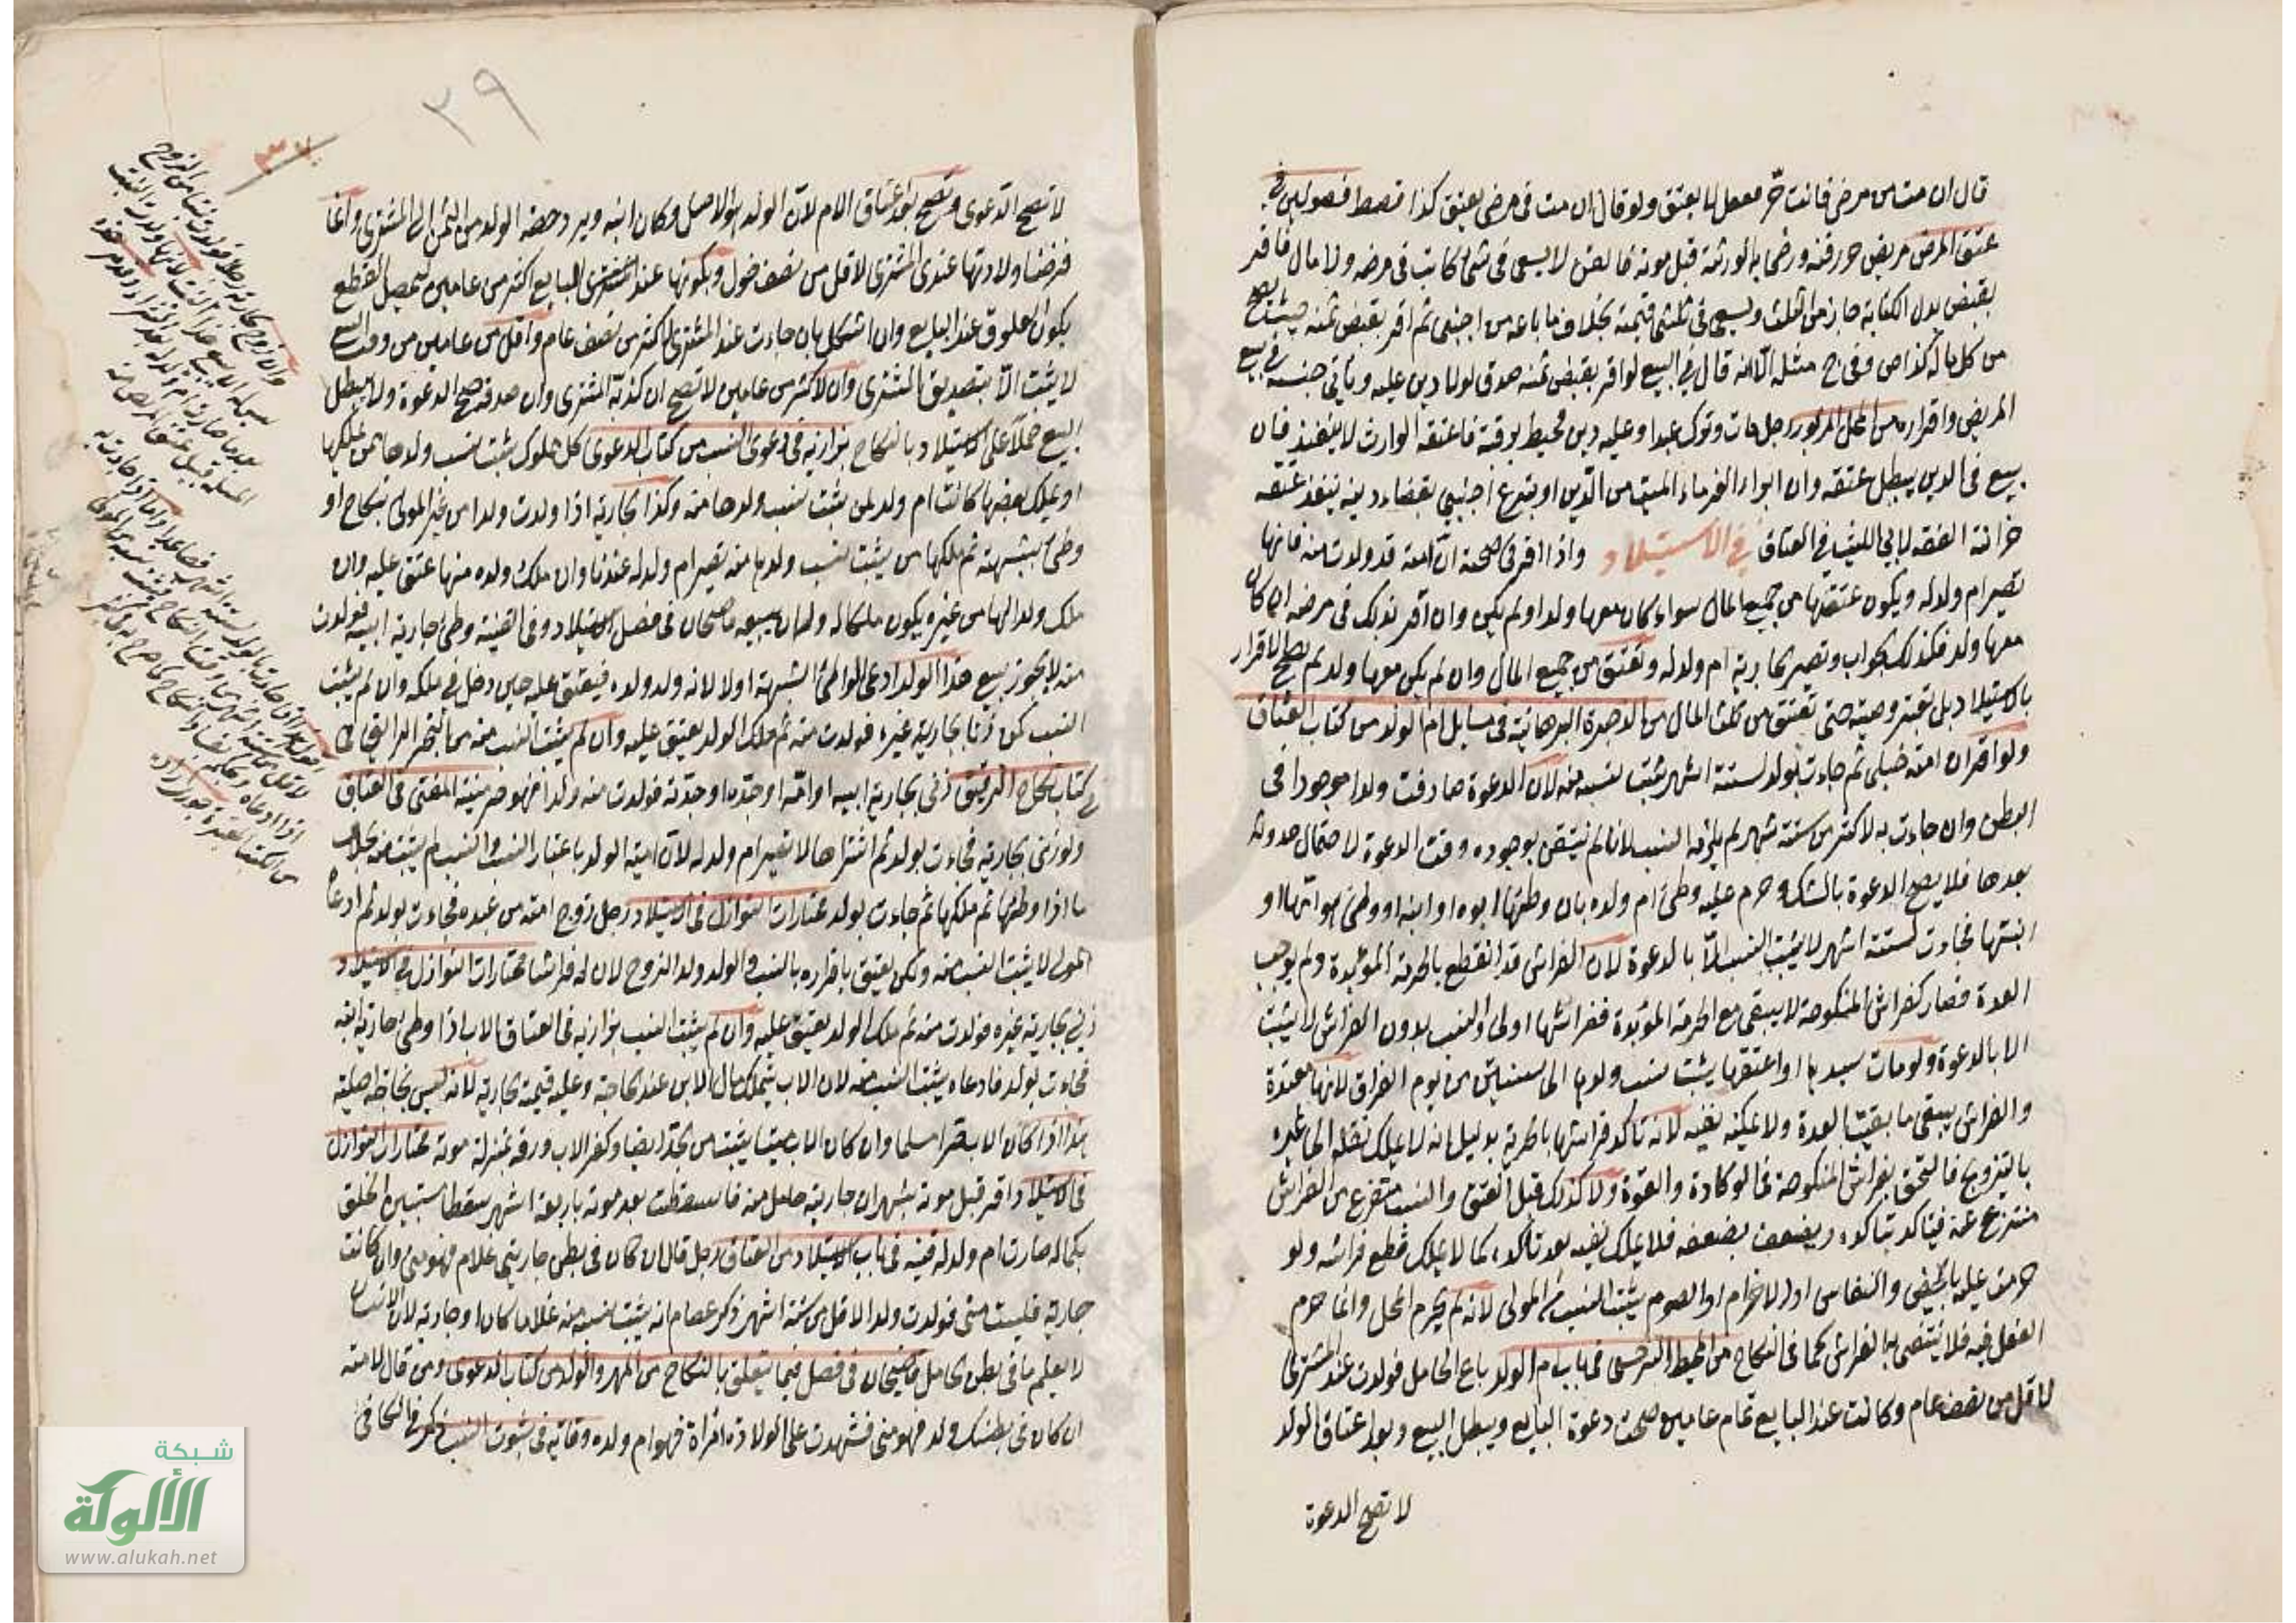 قال ان مت من مرض فانت حر فقتل لا يعتق ولو قال ان مت في مرضي يعتق كذا فصط فصولين في
عتق المرض مريض حرر قنه ورضي به الورثة قبل موته فالقن لا يسعى في شئ كاتب في مرضه ولا مال فاقر
بقبض بدل الكتابة جاز من الثلث ويسعى في ثلثي قيمته بخلاف ما باعه من اجنبي ثم اقر بقبض ثمنه حيث يصح
من كل ماله كذا ص وفي ج مثله الا انه قال في البيع لو اقر بقبض ثمنه صدق لو لا دين عليه ويأتي جنسه في بيع
المريض واقراره من المحل المزبور رجل مات وترك عبدا وعليه دين محيط برقبته فاعتقه الوارث لا ينفذ فان
بيع في الدين يبطل عتقه وان ابراء الغرماء الميت من الدين او تبرع اجنبي بقضاء دينه ينفذ عتقه
خزانة الفقه لابي الليث في العتاق في الاستيلاد واذا اقر في صحته ان امته قد ولدت منه فانها
تصير ام ولد له ويكون عتقها من جميع المال سواء كان معها ولد او لم يكن وان اقر بذلك في مرضه ان كان
معها ولد فكذلك الجواب وتصير الجارية ام ولد له وتعتق من جميع المال وان لم يكن معها ولد لم يصح الاقرار
بالاستيلاد بل تعتبر وصيته حتى تعتق من ثلث المال من الوجيز البرهانية في مسايل ام الولد من كتاب العتاق
ولو اقر ان امته حبلى ثم جاءت بولد لستة اشهر يثبت نسبه منه لان الدعوة صادفت ولدا موجودا في
البطن وان جاءت به لاكثر من ستة شهر لم يلزمه النسب لانا لم نتيقن بوجوده وقت الدعوة لاحتمال حدوثه
بعدها فلا يصح الدعوة بالشك وحرم عليه وطئ ام ولده بان وطئها ابوه او ابنه او وطئ هو امها او
ابنتها فجاءت لستة اشهر لا يثبت النسب الا بالدعوة لان الفراش قد انقطع بالحرمة المؤبدة ولم يوجب
العدة فصار كفراش المنكوحة لا يبقى مع الحرمة المؤبدة ففراشها اولى والنسب بدون الفراش لا يثبت
الا بالدعوة ولو مات سيدها او اعتقها يثبت نسب ولدها الى سنتين من يوم الفراق لانها معتدة
والفراش يبقى ما بقيت العدة ولا يمكنه نفيه لانه تاكد فراشها بالحرية بدليل انه لا يملك نقله الى غيره
بالتزويج فالتحق بفراش المنكوحة في الوكادة والقوة ولا كذلك قبل العتق والنسب متفرع من الفراش
منتزع عنه فيتاكد بتاكده ويضعف بضعفه فلا يملك نفيه بعد تاكده كما لا يملك قطع فراشه ولو
حرمت عليه بالحيض والنفاس او الاحرام او الصوم يثبت النسب من المولى لانه لم يحرم المحل وانما حرم
الفعل فيه فلا ينتقص به الفراش كما في النكاح من المحيط السرخسي في باب ام الولد باع الحامل فولدت عند المشتري
لاقل من نصف عام وكانت عند البايع تمام عامين صحت دعوة البايع ويبطل البيع وبعد اعتاق الولد
لا تصح الدعوة
٣٩
لا تصح الدعوى وتصح بعد اعتاق الام لان الولد هو الاصل وكان ابنه ويرد حصة الولد من الثمن الى المشتري وانما
فرضنا ولادتها عند المشتري لاقل من نصف حول وبكونها عند البايع اكثر من عامين ليحصل القطع
بكون العلوق عند البايع وان اشكل بان جاءت عند المشتري لاكثر من نصف عام واقل من عامين من وقت البيع
لا يثبت الا بتصديق المشتري وان لاكثر من عامين لا تصح ان كذبه المشتري وان صدقه صح الدعوة ولا يبطل
البيع حملا على الاستيلاد بالنكاح بزازيه في دعوى النسب من كتاب الدعوى كل مملوك يثبت نسب ولدها ممن يملكها
او يملك بعضها كانت ام ولد لمن يثبت نسب ولدها منه وكذا الجارية اذا ولدت ولدا من غير المولى بنكاح او
وطئ بشبهة ثم ملكها من يثبت نسب ولدها منه تصير ام ولد له عندنا وان ملك ولده منها عتق عليه وان
ملك ولدا لها من غيره يكون ملكا له وله ان يبيعه قاضيخان في فصل الاستيلاد وفي القنية وطئ جارية ابيه فولدت
منه لا يجوز بيع هذا الولد ادعى الواطئ الشبهة اولا لانه ولد ولده فيعتق عليه حين دخل في ملكه وان لم يثبت
النسب كمن زنا بجارية غيره فولدت منه ثم ملك الولد يعتق عليه وان لم يثبت النسب منه من البحر الرايق في
كتاب نكاح الرقيق زنى بجارية ابيه او امه او جده او جدته فولدت منه ولدا فهو حر منية المفتي في العتاق
ولو زنى بجارية فجاءت بولد ثم اشتراها لا تصير ام ولد له لان امية الولد باعتبار النسب والنسب لم يثبت منه بخلاف
ما اذا وطئها ثم ملكها ثم جاءت بولد مختارات النوازل في الاستيلاد رجل زوج امته من عبده فجاءت بولد ثم ادعاه
المولى لا يثبت النسب منه ولكن يعتق باقراره بالنسب والولد ولد الزوج لان له فراشا مختارات النوازل في الاستيلاد
زنى بجارية غيره فولدت منه ثم ملك الولد يعتق عليه وان لم يثبت النسب بزازيه في العتاق الاب اذا وطئ جارية ابنه
فجاءت بولد فادعاه يثبت النسب منه لان الاب يتملك مال الابن عند الحاجة وعليه قيمة الجارية لانه ليس بحاجة اصلية
هذا اذا كان الاب حرا مسلما وان كان الاب ميتا يثبت من الجد ايضا وكفر الاب ورقه بمنزلة موته مختارات النوازل
في الاستيلاد اقر قبل موته بشهر ان جاريته حامل منه فاسقطت بعد موته باربعة اشهر سقطا مستبين الخلق
بكماله صارت ام ولد له قنيه في باب الاستيلاد من العتاق رجل قال ان كان في بطن جاريتي غلام فهو مني وان كانت
جارية فليست مني فولدت ولدا لاقل من ستة اشهر ذكر عصام انه يثبت نسبه منه غلاما كان او جارية لان الانسان
لا يعلم ما في بطن الحامل قاضيخان في فصل فيما يتعلق بالنكاح من المهر والولد من كتاب الدعوى ومن قال لامته
ان كان في بطنك ولد فهو مني فشهدت على الولادة امراة فهي ام ولده وقايه في ثبوت النسب ذكر في الكافي
شبكة
الألوكة
www.alukah.net